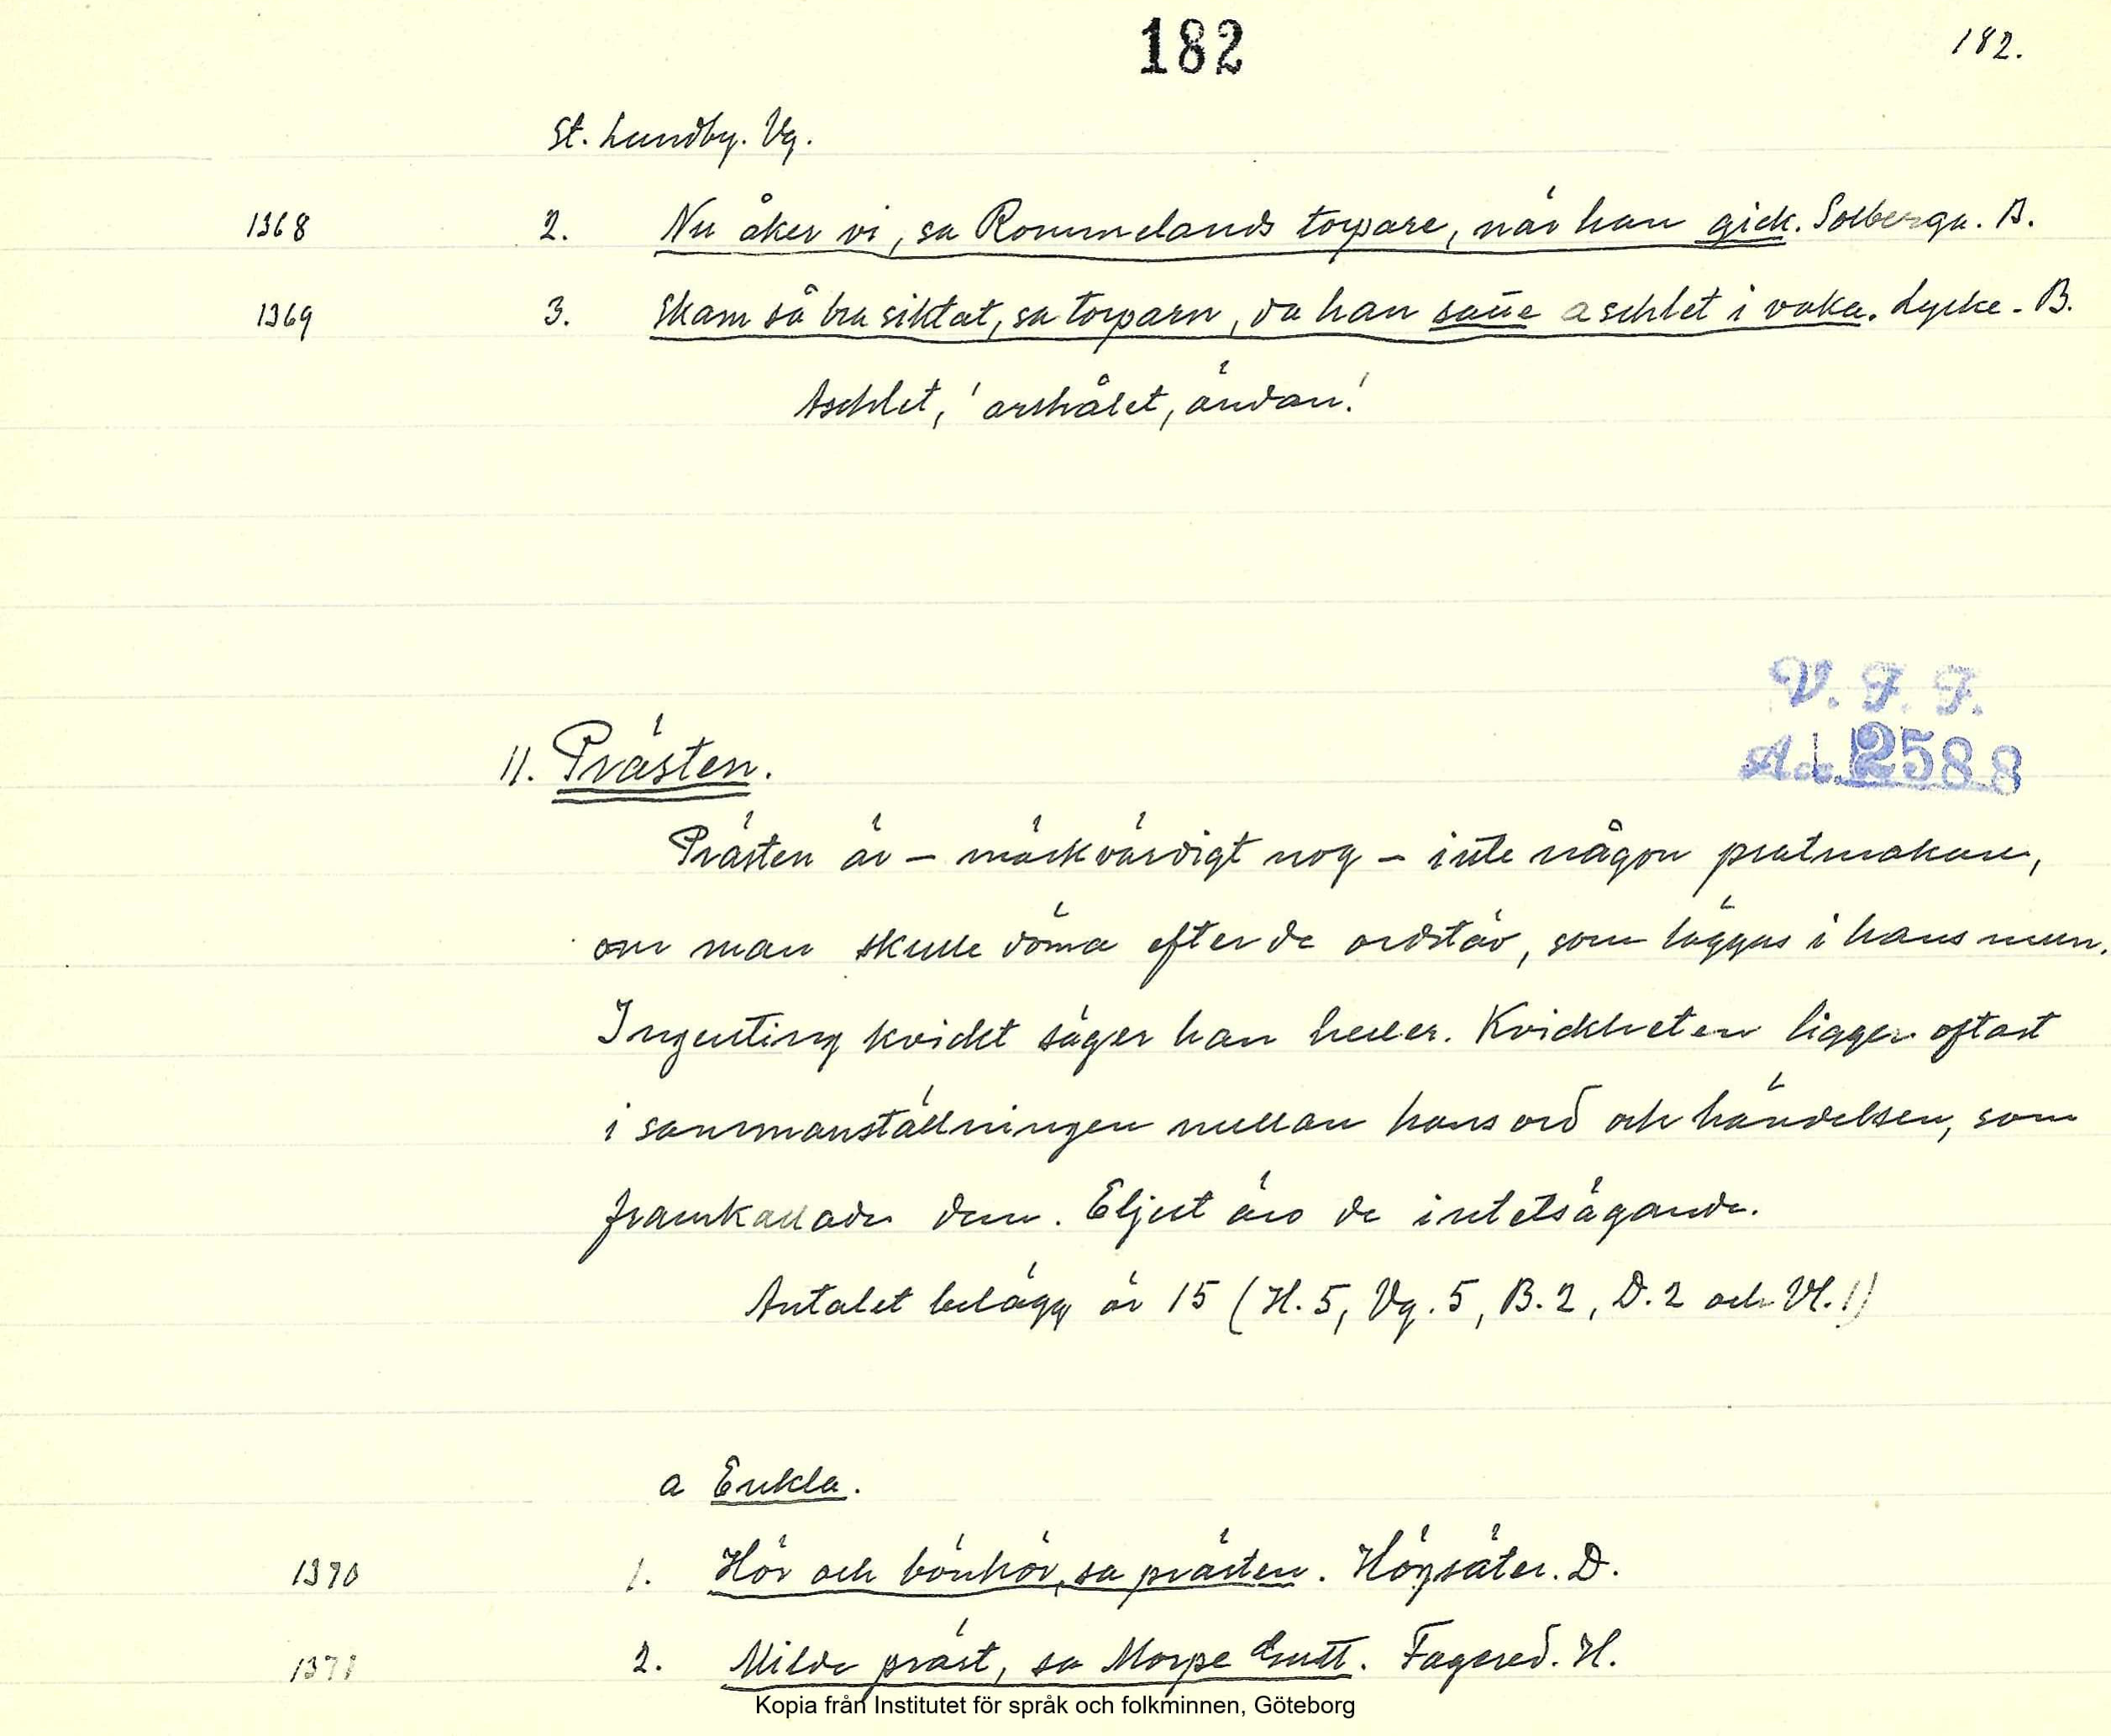 182
182.
St. Lundby. Vg.
1368 2. Nu åker vi, sa Rommelands torpare, när han gick. Solberga. B.
1369 3. Skam så bra siktat, sa torparn, då han satte aschlet i vaka. Lycke. B.
Aschlet, 'arshålet, ändan.'
V. F. F.
Acc. 2588
11. Prästen.
Prästen är – märkvärdigt nog – inte någon pratmakare,
om man skulle döma efter de ordstäv, som läggas i hans mun.
Ingenting kvickt säger han heller. Kvickheten ligger oftast
i sammanställningen mellan hans ord och händelsen, som
framkallade dem. Eljest äro de intetsägande.
Antalet belägg är 15 (H. 5, Vg. 5, B. 2, D. 2 och Vl. 1)
a Enkla.
1370 1. Hör och bönhör, sa prästen. Högsäter. D.
1371 2. Milde präst, sa Morpe. Fagered. H.
Kopia från Institutet för språk och folkminnen, Göteborg